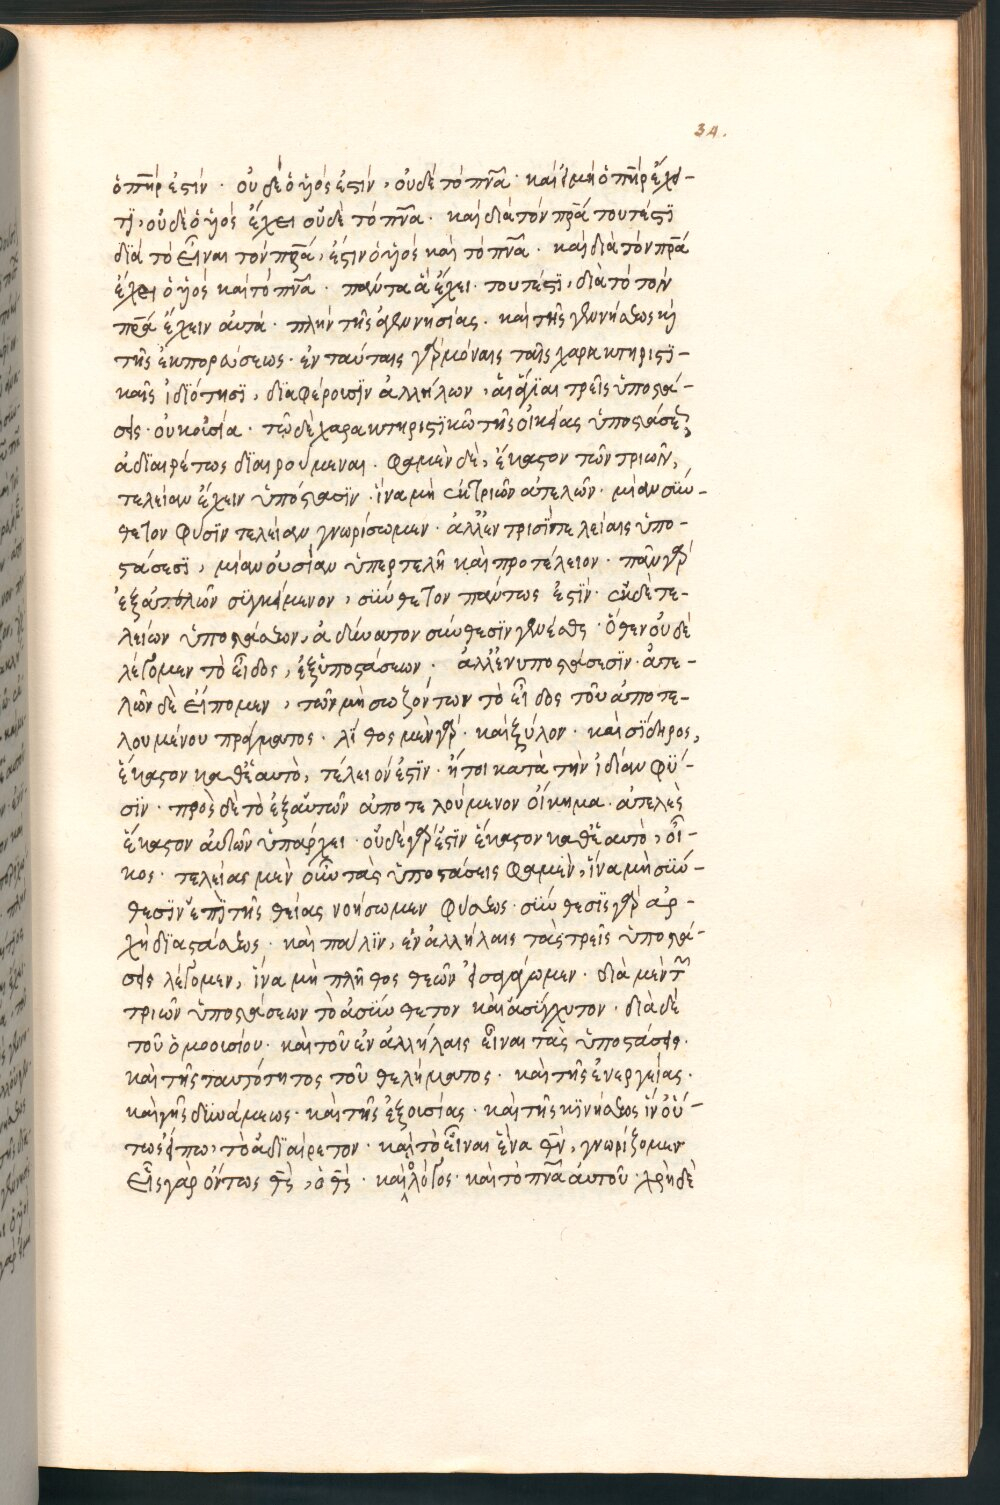 34.
ὁ πη̅ρ ἐστίν · οὐδὲ ὁ ὑιός ἐστίν, οὐδὲ τὸ πν̅α · καὶ εἰ μὴ ὁ πη̅ρ ἔχει
τϊ, οὐδὲ ὁ ὑιὸς ἔχει οὐδὲ τὸ πν̅α · καὶ διὰ τὸν πρ̅α τουτέστϊ
δϊὰ τὸ εἶναι τὸν πρ̅α, ἔστιν ὁ ὑιὸς καὶ τὸ πν̅α · καὶ διὰ τὸν πρ̅α
ἔχει ὁ ὑιὸς καὶ τὸ πν̅α · πάντα ἃ ἔχει · τουτέστϊ, διὰ τὸ τὸν
πρ̅α ἔχειν ἀυτά · πλὴν τῆς ἀγεννησίας · καὶ τῆς γεννήσεως κὶ
τῆς ἐκπορεύσεως · ἐν ταύταις γὰρ μόναις ταῖς χαρακτηριστϊ-
καῖς ἰδϊότησϊ, δϊαφέρουσϊν ἀλλήλων, ἁι ἅγϊαι τρεῖς ὑποστά-
σεις · ουκ οὐσία · τῶ δὲ χαρακτηριστϊκῶ τῆς οἰκείας ὑποστάσεως,
ἀδϊαιρέτως δϊαιρούμεναι · φαμὲν δὲ, ἕκαστον τῶν τριῶν,
τελείαν ἔχειν ὑπόστασϊν · ἵνα μὴ ἐκ τριῶν ἀτελῶν · μίαν σϋν-
θετον φύσϊν τελείαν γνωρίσωμεν · ἀλλ' ἐν τρισϊν τελείαις ὑπο-
στάσεσϊ, μίαν ὀυσίαν ὑπερτελῆ καὶ προτέλειον · πᾶν γὰρ
ἐξ ἀτελῶν σϋγκείμενον, σϋνθετον πάντως ἐστϊν · ἐκ δὲ τε-
λείων ὑποστάσεων, ἀδύνατον σύνθεσϊν γενέσθαι · ὅθεν οὐδὲ
λέγομεν τὸ εἶδος, ἐξ ὑποστάσεων, ἀλλ' ἐν υποστάσεσϊν · ἀτε-
λῶν δὲ εἴπομεν, τῶν μὴ σωζόντων τὸ εἶδος τοῦ ἀποτε-
λουμένου πράγματος · λί θος μὲν γὰρ · καὶ ξύλον · καὶ σϊδηρος,
ἕκαστον καθ' ἑαυτὸ, τέλειόν ἐστϊν · ἤτοι κατὰ τὴν ἰδίαν φϋ-
σϊν · πρὸς δὲ τὸ ἐξ αὐτῶν ἀποτελούμενον οἴκημα · ἀτελὲς
ἕκαστον ἀυτῶν ὑπάρχει · οὐδὲ γάρ ἐστϊν ἕκαστον καθ' ἑαυτὸ, οἶ-
κος · τελείας μὲν οὖν τὰς ὑποστάσεις φαμὲν, ἵνα μὴ σϋν-
θεσϊν ἐπὶ τῆς θείας νοήσωμεν φύσεως · σϋνθεσϊς γὰρ ἀρ-
χὴ δϊαστάσεως · καὶ πάλϊν, ἐν ἀλλήλαις τὰς τρεῖς ὑποστά-
σεις λέγομεν, ἵνα μὴ πλῆθος θεῶν εἰσαγάγωμεν · διὰ μὲν τῶν
τριῶν ὑποστάσεων τὸ ἀσύνθετον καὶ ἀσϋγχυτον · διὰ δὲ
τοῦ ὁμοουσίου · καὶ τοῦ ἐν ἀλλήλαις εἶναι τὰς ὑποστάσεις ·
καὶ τῆς ταυτότητος τοῦ θελήματος · καὶ τῆς ἐνεργείας ·
καὶ γῆς δϋνάμεως · καὶ τῆς ἐξουσίας · καὶ τῆς κϊνήσεως ἵν' οὕ-
τως εἴπω, τὸ ἀδϊαίρετον · καὶ τὸ εἶναι ἕνα θ̅ν, γνωρίζομεν
εἷς γὰρ ὄντως θ̅ς, ὁ θ̅ς · καὶ ὁ λόγος · καὶ τὸ πν̅α ἀυτοῦ · χρὴ δὲ